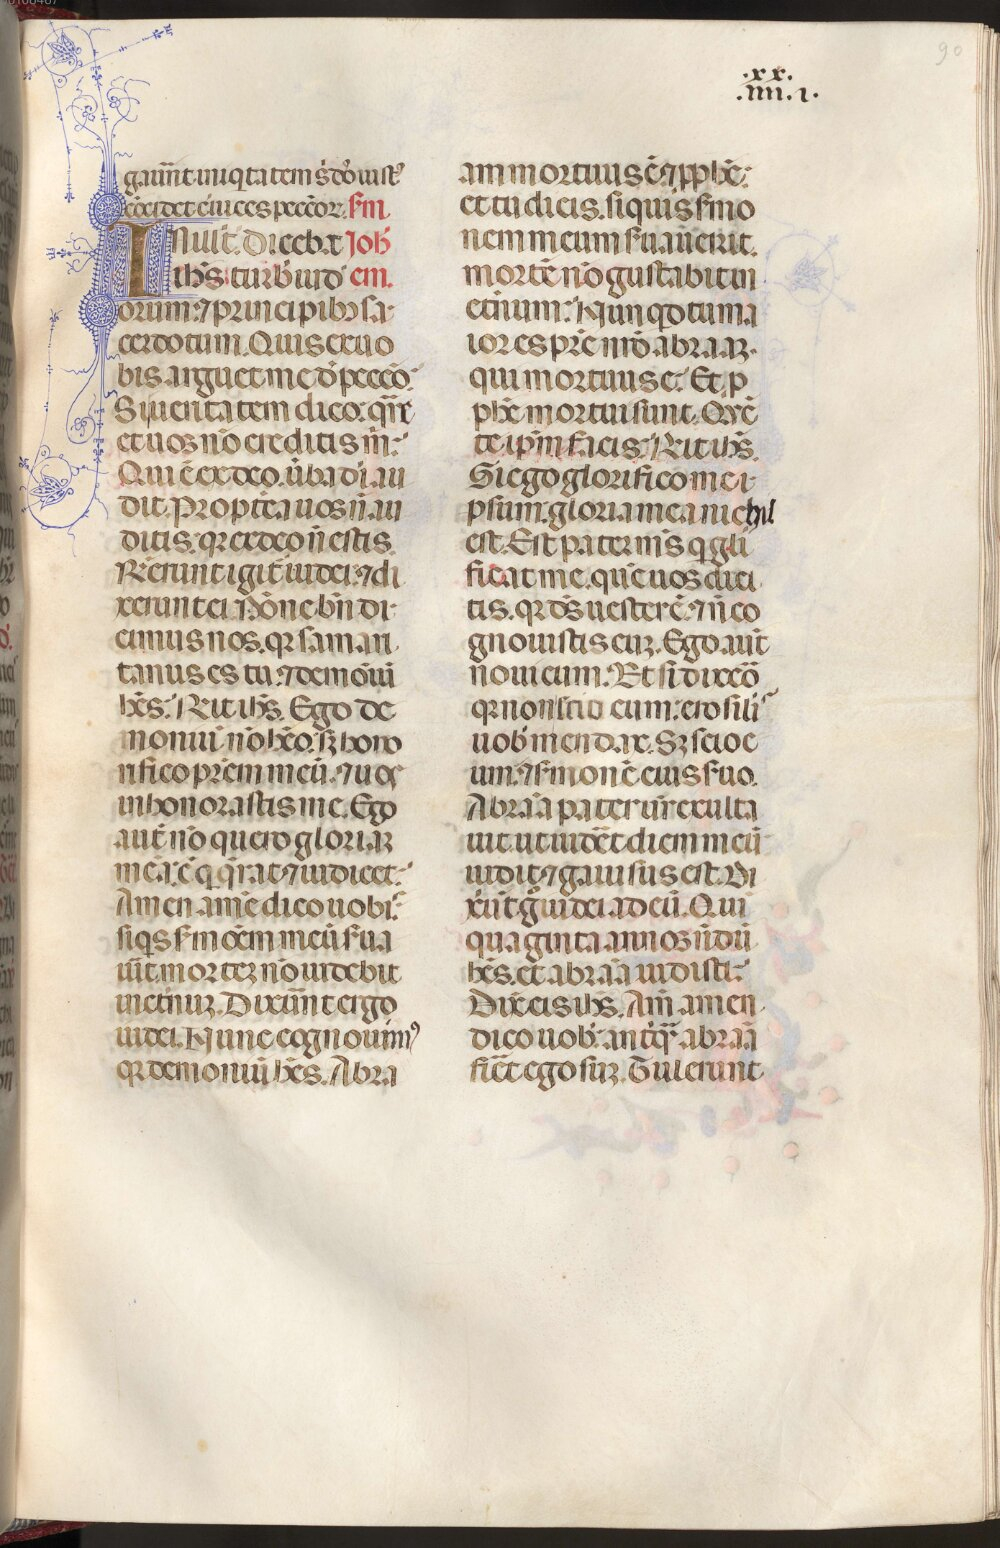 90
.xx.
.iiii.i.
gauer̄t iniq̇tatem s̄ dn̄s iust⁹
cōcidet ceruices pccōꝝ. sm̄
In illo t̄. Diceb̄t Joh̄
ih̄s turb iud em.
orum: ⁊ principibꝫ sa-
cerdotum. Quis ex uo
bis arguet me d̄ pcccō.
Si ueritatem dico: qr̄e
et uos nō creditis m̄:
Qui ē ex deo. ūba di au
dit. Propīea uos n̄ au
ditis. qꝛ ex deo n̄ estis.
R̄erunt igit̄ iudei. ⁊ di
xerunt ei. Nōne bn̄ di-
cimus nos. qꝛ samari-
tanus es tu. ⁊ demōiū
hēs. R̄it ih̄s. Ego de
moniū nō hēo. sꝫ hono
rifico prēm meū. ⁊ uos
inhonorastis me. Ego
aut̄ nō quero gloriaꝫ
meā. ē q̇ q̄rat ⁊ iudicet.
Amen amē dico uobis.
siq̇s sm̄oēm meū sua
u̇it morteꝫ nō uidebit
in et̄nuꝫ. Dixer̄nt ergo
iudei. Nunc cognouim⁹
qꝛ demoniū hēs. Abra
am mortuus ē ⁊ pp̄hē.
et tu dicis. si quis sm̄o
nem meum s̄uauerit.
mortē nō gustabit in
et̄num. Nunqd tu ma
ior es pr̄e nr̄o abraaꝫ.
qui mortuus ē. Et p̄
phē mortui sunt. Quē
te ip̄m facis. R̄it ih̄s.
Si ego glorifico me i-
psum. gloria mea nichil
est. Est pater m̄s q̇ gl̄i
ficat me. quē uos dici
tis. qꝛ dō̄s uester ē. ⁊ n̄ co
gnouistis euꝫ. Ego aut̄
noui eum. Et si dixero
qꝛ non scio eum: ero sili
uob̄ mendax. Sꝫ scio e
um. ⁊ sm̄onē eius s̄uo.
Abraā pater ur̄ exulta
uit ut uidēt diem meū
uidit ⁊ gauisus est. Di
xer̄t g̊ iudei ad eū. Qui
quaginta annos n̄dū
hēs. et abraā uidisti.
Dix̄ eis ih̄s. Am̄ amen
dico uob̄. anteq̄ꝫ abraā
fiēt ego suꝫ. Tulerunt